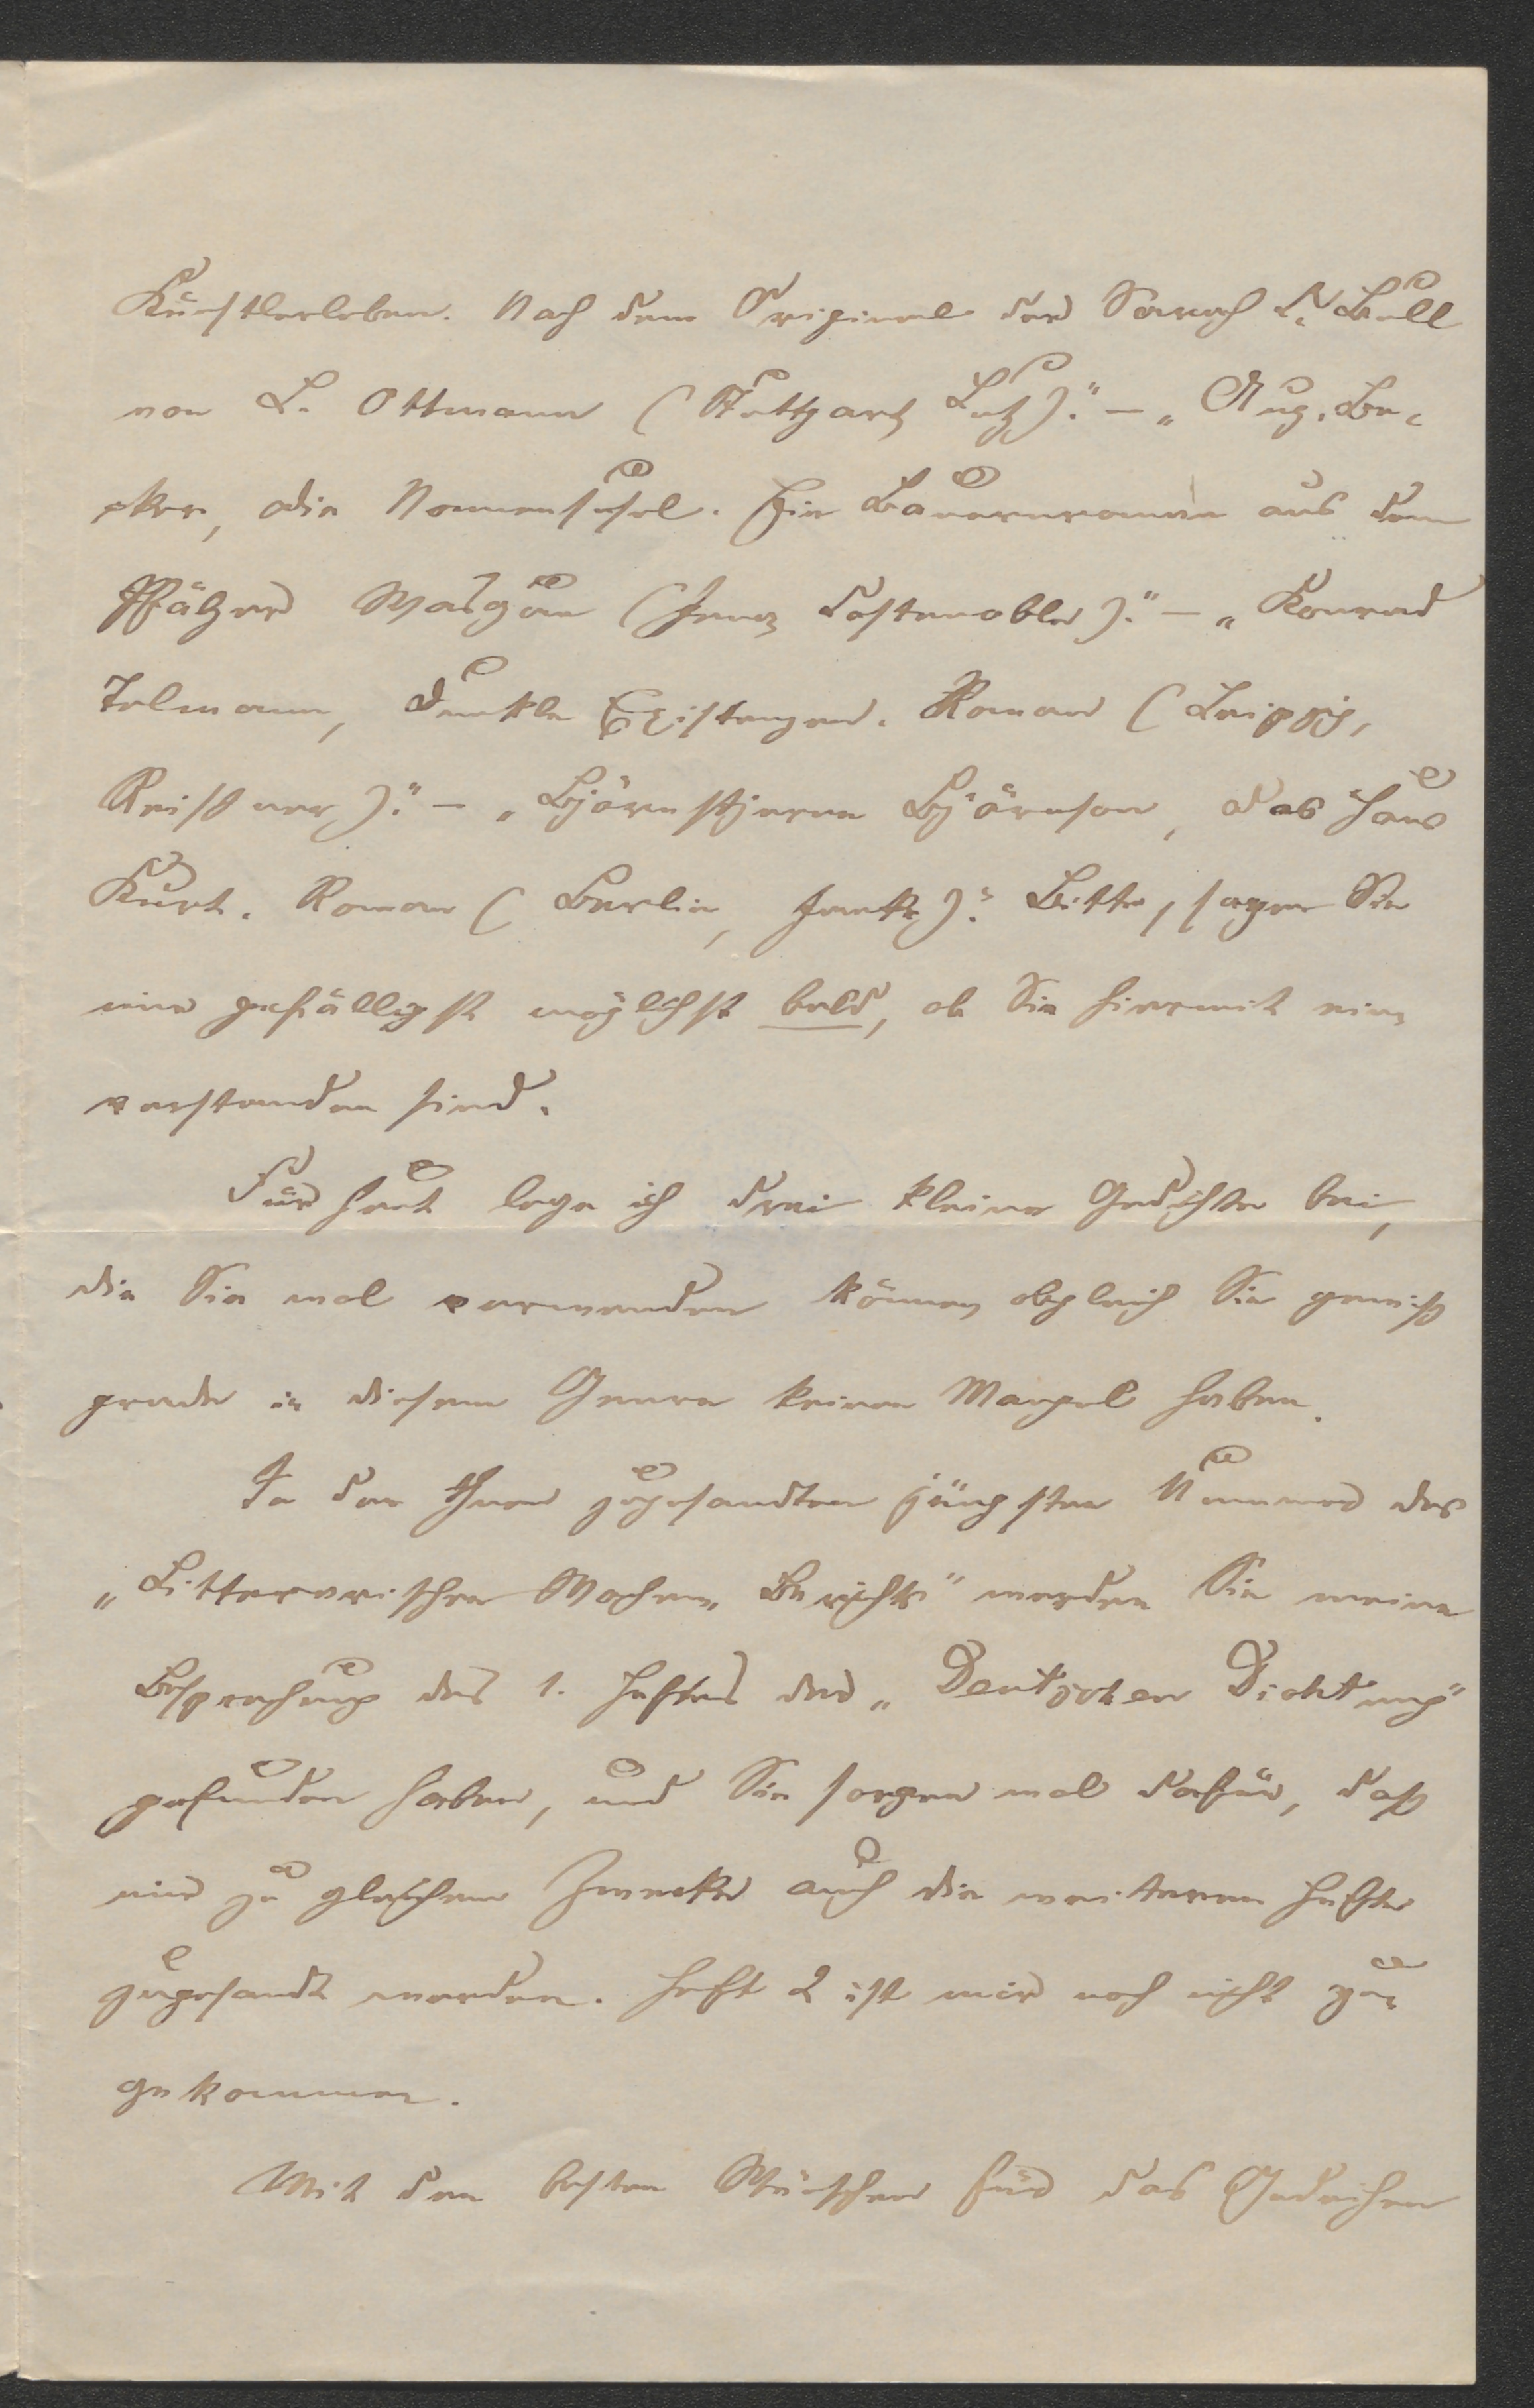 Künstlerleben. Nach dem Original der Sarah C. Bull
von L. Ottmann (Stuttgart, Lutz)." – „Aug. Be-
cker, die Nonnensusel. Ein Bauernroman aus dem
Pfälzer Wasgau (Jena, Costenoble)." – „Konrad
Telmann, Dunkle Existenzen. Roman (Leipzig,
Reißner)." – „Björnstjerne Björnson, Das Haus
Kurt. Roman (Berlin, Janke)." Bitte, sagen Sie
mir gefälligst möglichst bald, ob Sie hiermit ein-
verstanden sind.
Für heut lege ich drei kleine Gedichte bei,
die Sie mal verwenden können, obgleich Sie gewiß
grade in diesem Genre keinen Mangel haben.
In der Ihnen zugesandten jüngsten Nummer des
„Litterarischen Wochen-Berichts" werden Sie meine
Besprechung des 1. Heftes der „Deutschen Dichtung"
gefunden haben, und Sie sorgen mal dafür, daß
mir zu gleichem Zwecke auch die weiteren Hefte
zugesandt werden. Heft 2 ist mir noch nicht zu-
gekommen.
Mit den besten Wünschen für das Gedeihen